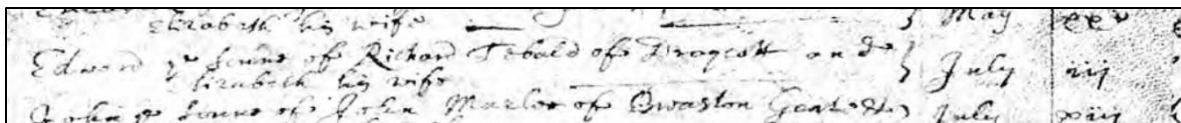 Elizabeth his wife } May xxv
Edward ye sonne of Richard Tebald of Draycott and
Elizabeth his wife } July iii
John ye sonne of John of July xiii